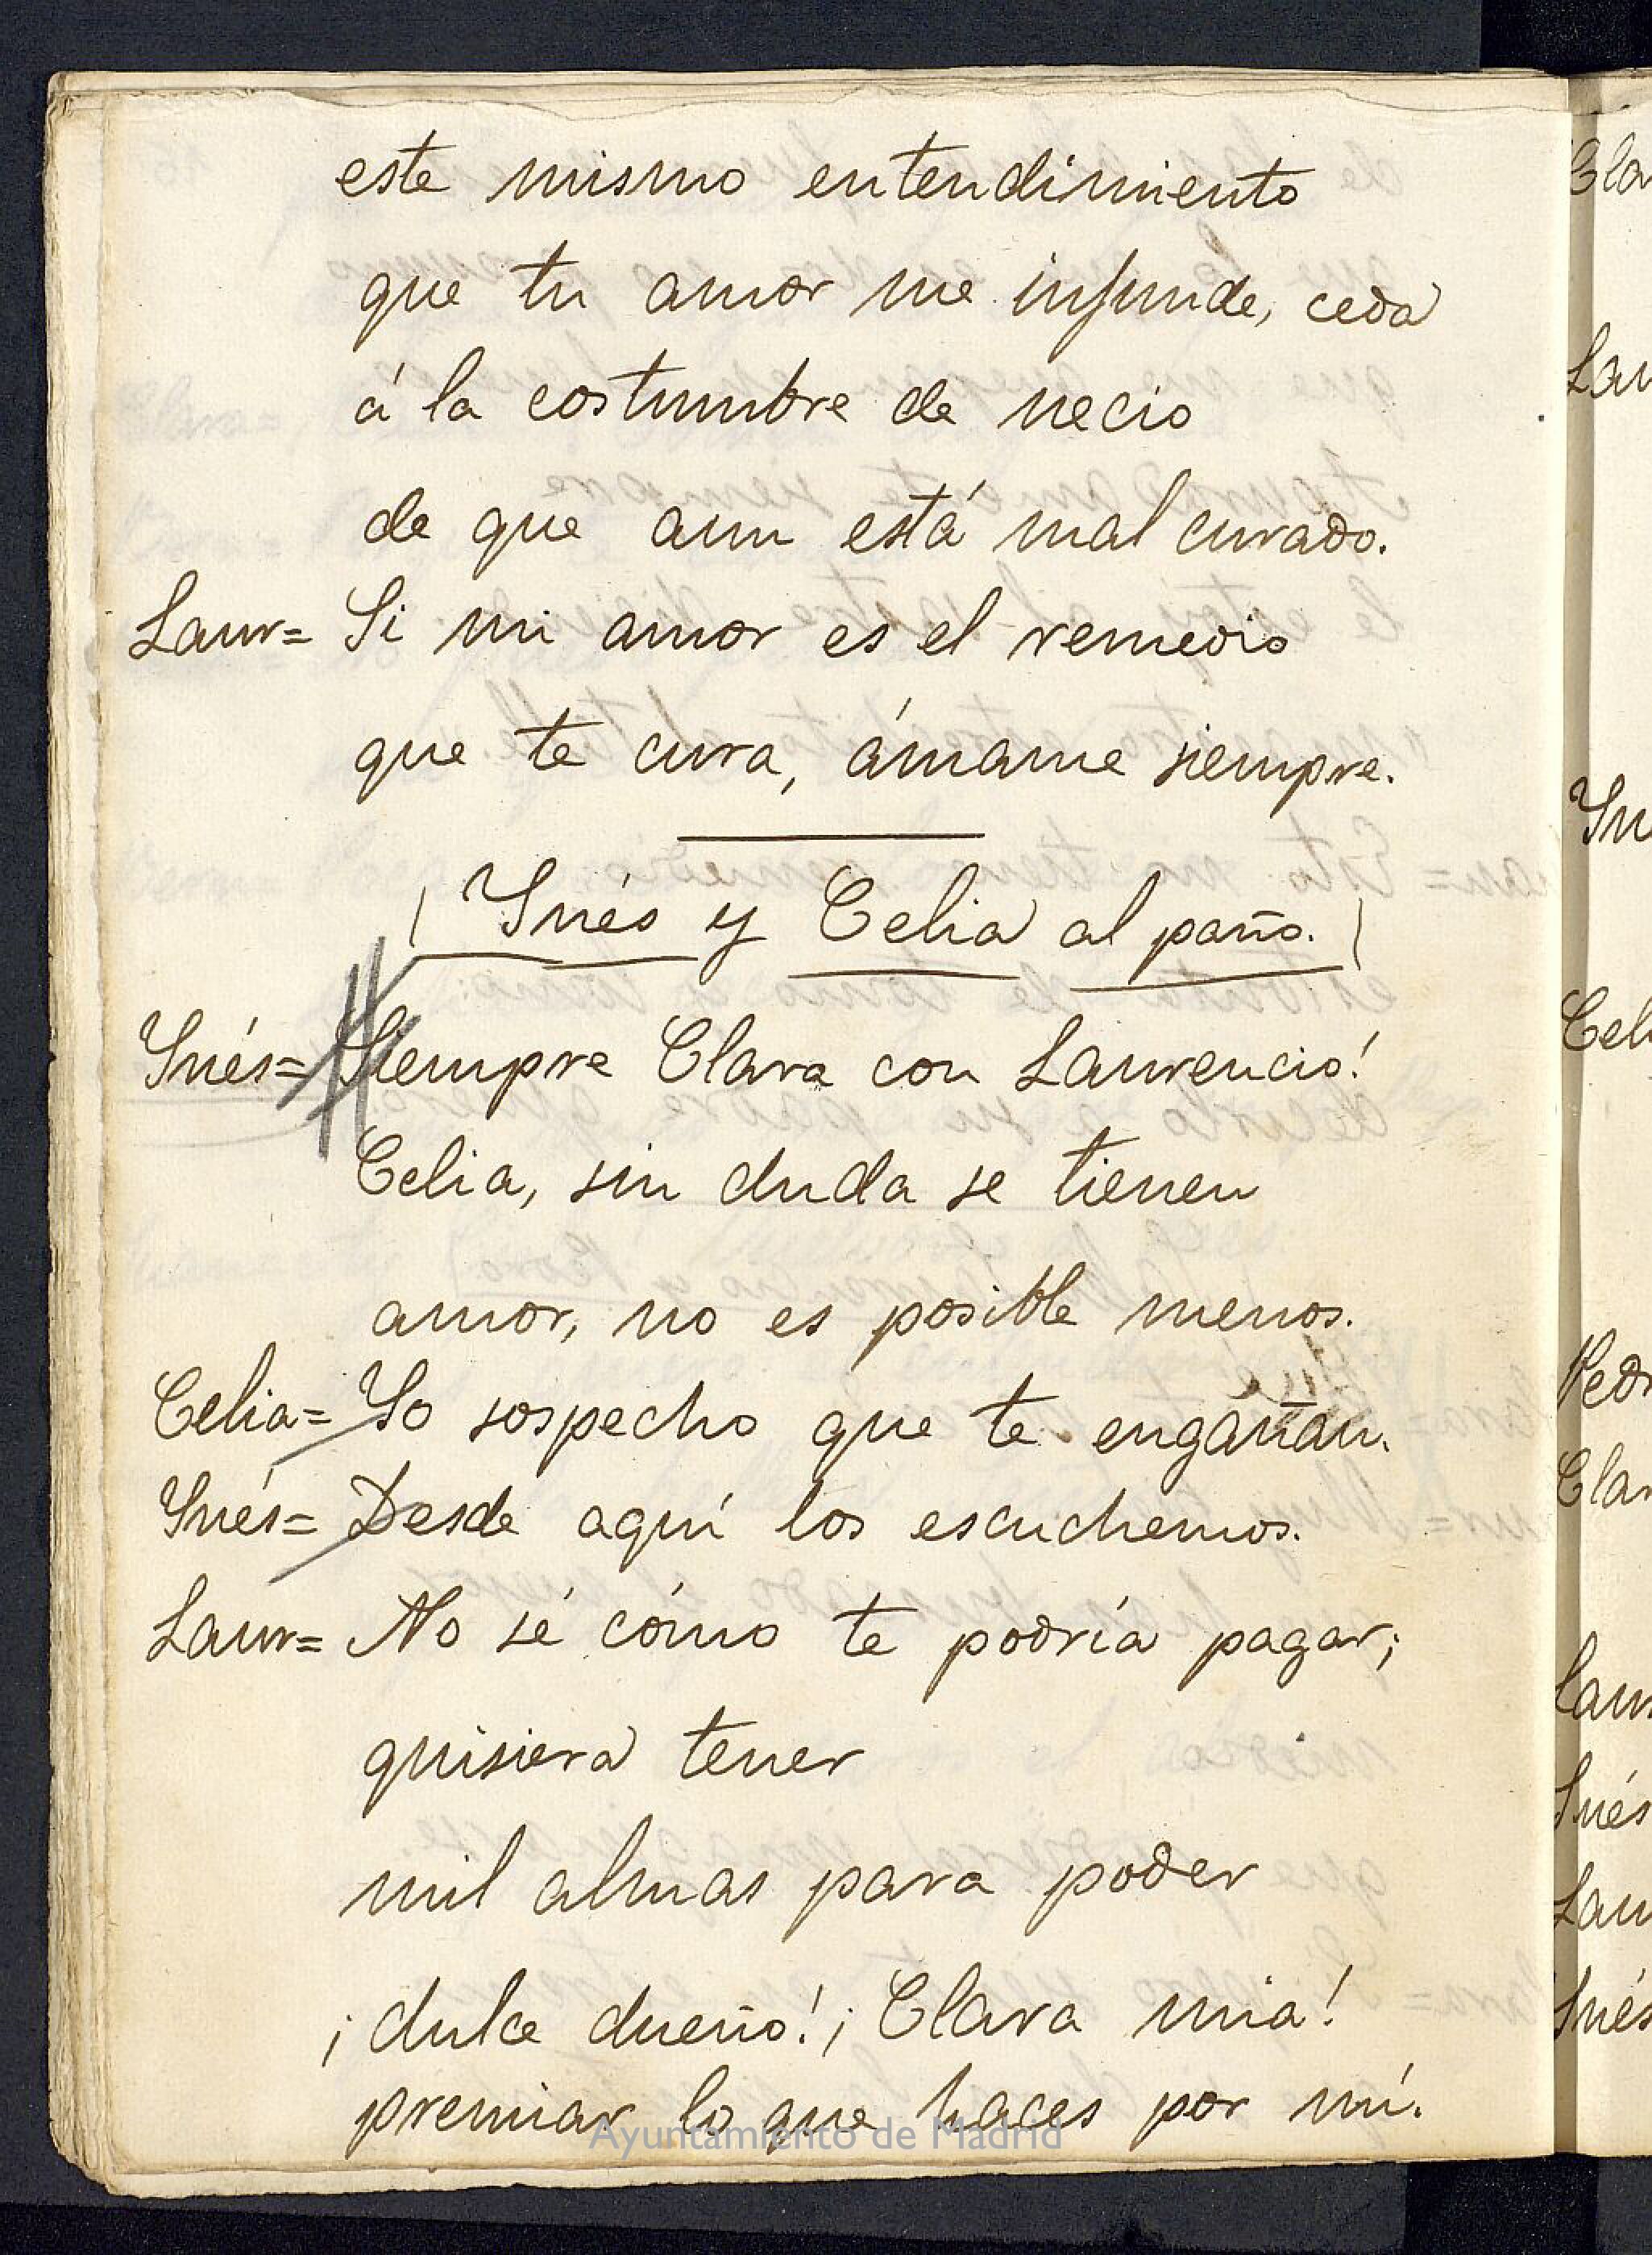 este mismo entendimiento
que tu amor me infunde, ceda
á la costumbre de necio
de que aun está mal curado.
Laur= Si mi amor es el remedio
que te cura, ámame siempre.
(Ynés y Celia al paño.)
Ynés= Siempre Clara con Laurencio!
Celia, sin duda se tienen
amor, no es posible menos.
Celia= Yo sospecho que te engañan.
Ynés= Desde aquí los escuchemos.
Laur= No sé cómo te podría pagar;
quisiera tener
mil almas para poder
¡dulce dueño! ¡Clara mia!
premiar lo que haces por mí.
Ayuntamiento de Madrid
Cla
Lau
Yn
Cel
Pedr
Clar
Laur
Ynés
Lau
Ynés